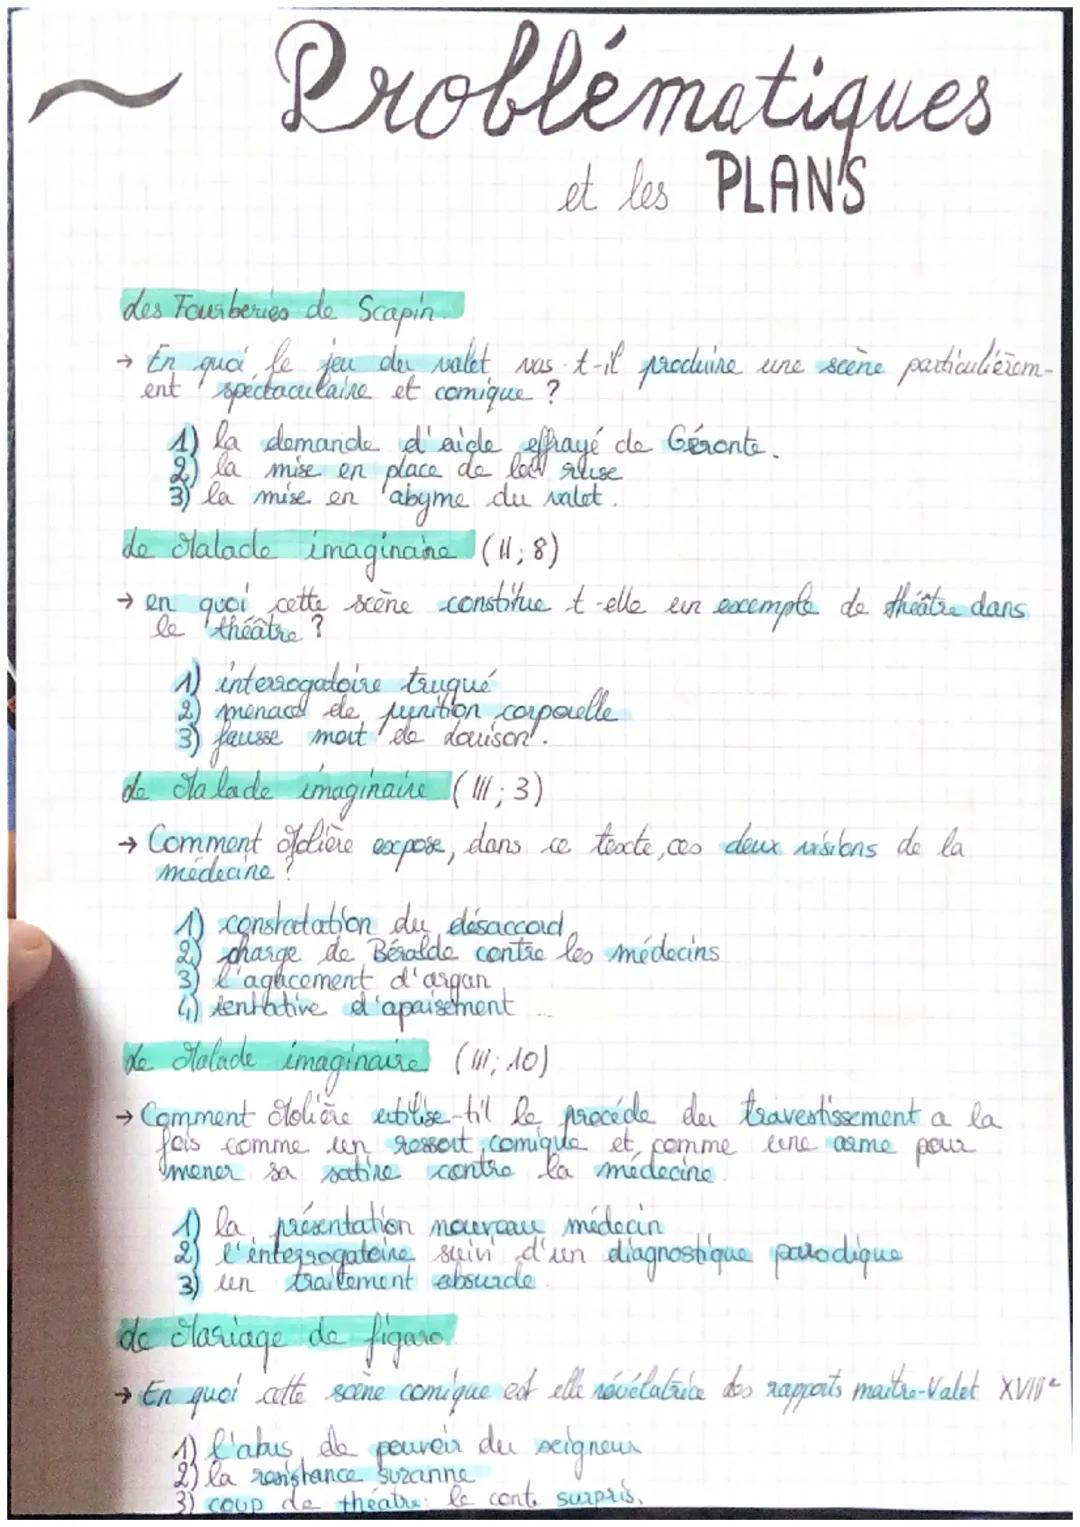 ~ Problématiques
et les PLANS
les Fourberies de Scapin.
→ En quoi le jeu du valet vas-t-il produire une scène particuliérem-
ent spectaculaire et comique ?
1) la demande d'aide effrayé de Géronte.
2) la mise en place de la ruse
3) la mise en abyme du valet.
Le Malade imaginaire (II; 8)
→ en quoi cette scène constitue t-elle un exemple de théâtre dans
le théâtre ?
1) interrogatoire truqué
2) menace de punition corporelle
3) fausse mort de Louison.
Le Malade imaginaire (III; 3)
→ Comment Molière expose, dans ce texte, ces deux visions de la
médecine ?
1) constatation du désaccord
2) charge de Béralde contre les médecins
3) l'agacement d'argan
4) tentative d'apaisement
Le Malade imaginaire (III; 10)
→ Comment Molière utilise-til le procéde du travestissement a la
fois comme un ressort comique et comme une arme pour
mener sa satire contre la médecine.
1) la présentation nouveau médecin
2) l'interrogatoire suivi d'un diagnostique parodique
3) un traitement absurde.
Le Mariage de figaro.
→ En quoi cette scène comique est elle révélatrice des rapports maitre-Valet XVIIIe
1) l'abus de pouvoir du seigneur
2) la resistance suzanne
3) coup de théatre: le conte surpris.